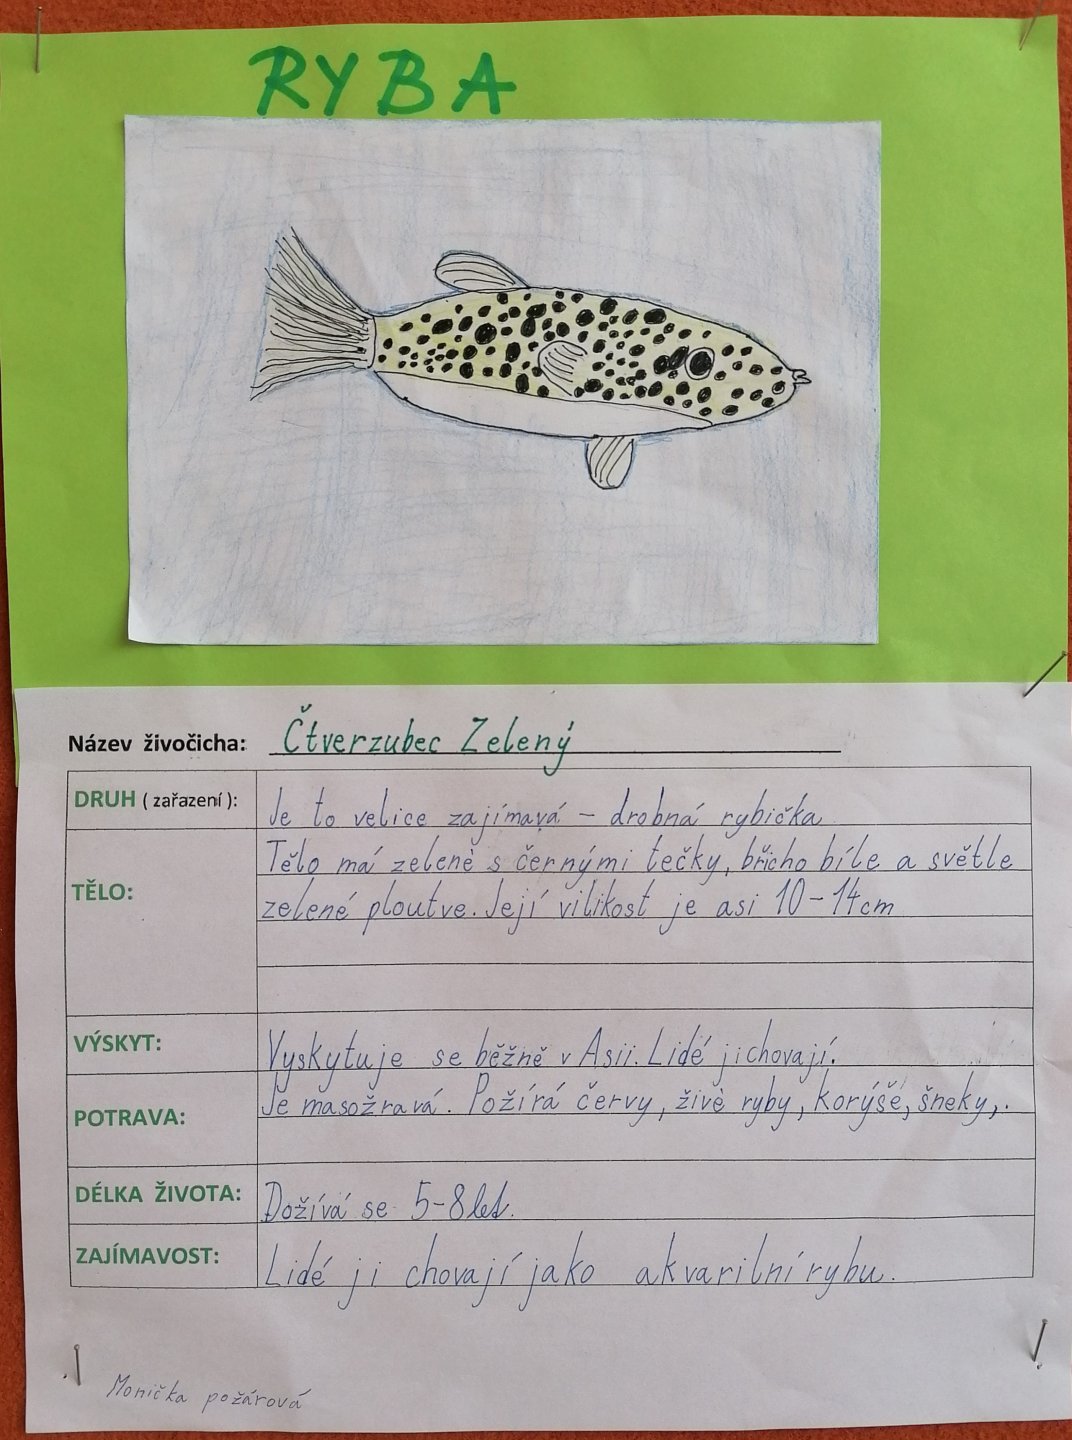 RYBA
Název živočicha: Čtverzubec Zelený
DRUH ( zařazení ): Je to velice zajímavá – drobná rybička
Tělo má zelené s černými tečky, břicho bíle a světle
TĚLO: zelené ploutve. Její vilikost je asi 10-14cm
VÝSKYT: Vyskytuje se běžně v Asii. Lidé ji chovají.
POTRAVA: Je masožravá. Požírá červy, živé ryby, korýšě, šneky,.
DÉLKA ŽIVOTA: Dožívá se 5-8 let.
ZAJÍMAVOST: Lidé ji chovají jako akvarilní rybu.
Monička požárová